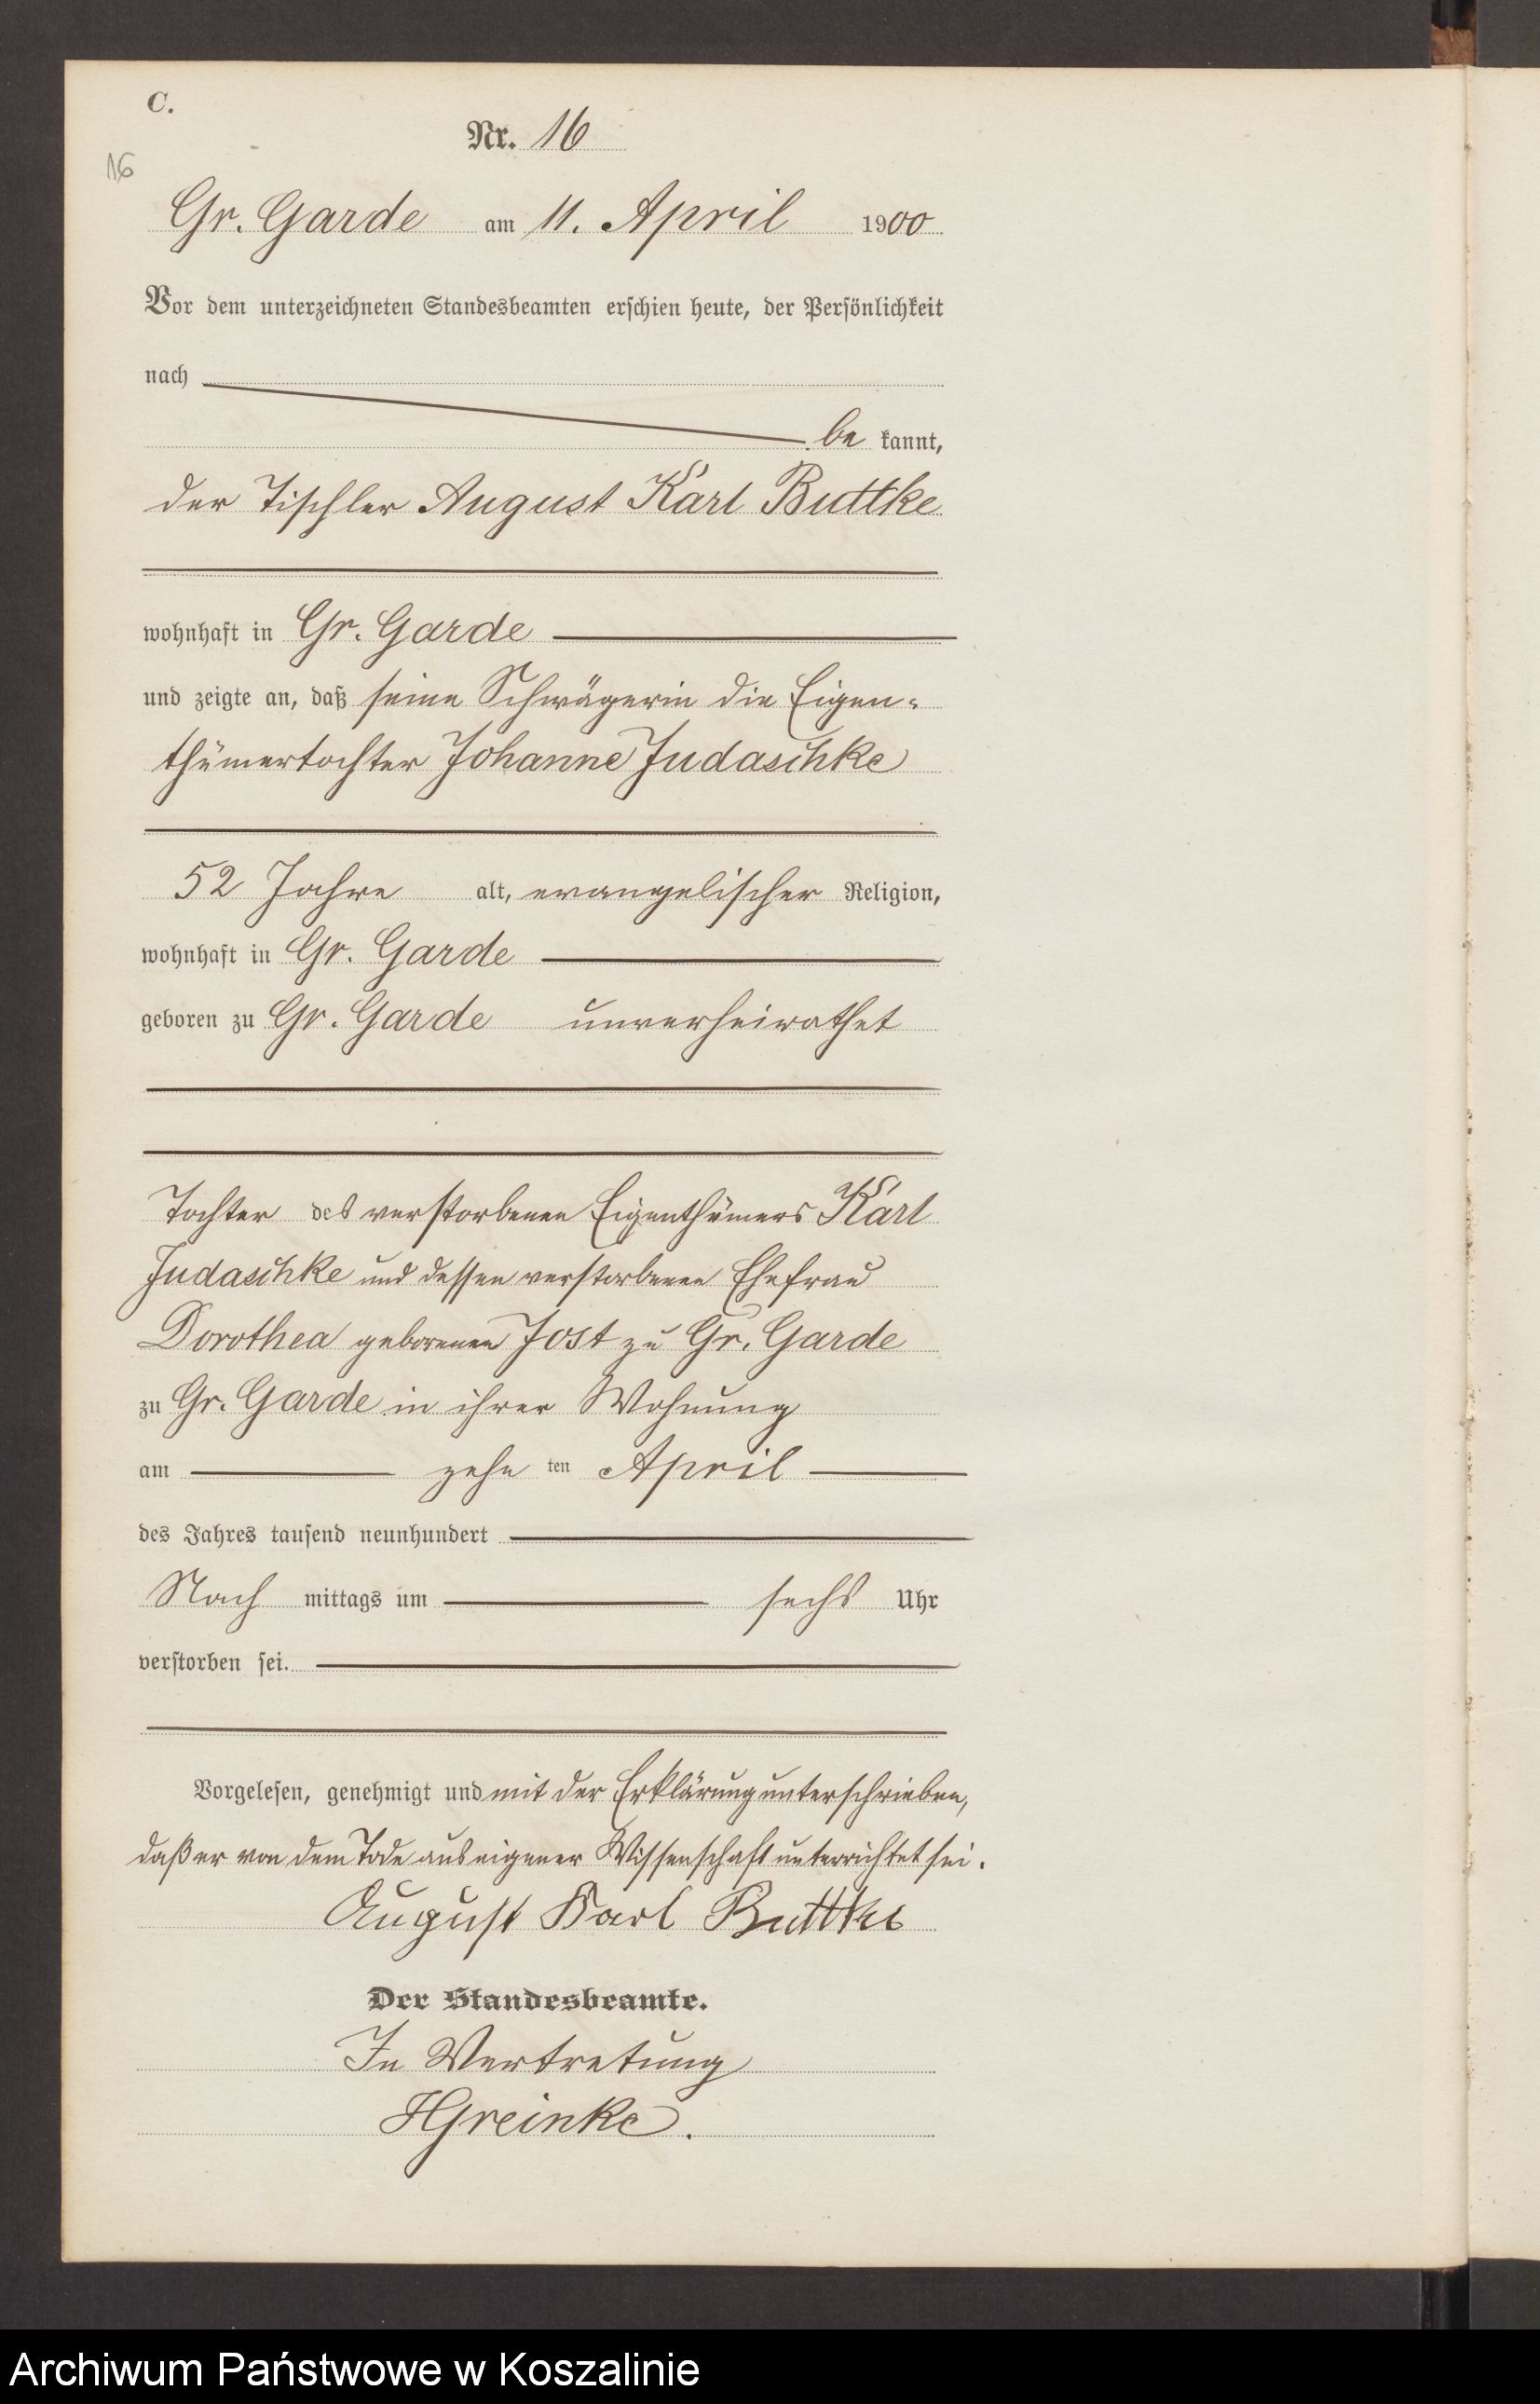 C.
Nr. 16
16
Gr. Garde am 11. April 1900
Vor dem unterzeichneten Standesbeamten erschien heute, der Persönlichkeit
nach
be kannt,
der Tischler August Karl Buttke
wohnhaft in Gr. Garde
und zeigte an, daß seine Schwägerin die Eigen-
thümertochter Johanne Judaschke
52 Jahre alt, evangelischer Religion,
wohnhaft in Gr. Garde
geboren zu Gr. Garde unverheirathet
Tochter des verstorbenen Eigenthümers Karl
Judaschke und dessen verstorbenen Ehefrau
Dorothea geborenen Jost zu Gr. Garde
zu Gr. Garde in ihrer Wohnung
am zehn ten April
des Jahres tausend neunhundert
Nach mittags um sechs Uhr
verstorben sei.
Vorgelesen, genehmigt und mit der Erklärung unterschrieben,
daß er von dem Tode aus eigener Wissenschaft unterrichtet sei.
August Karl Buttke
Der Standesbeamte.
In Vertretung
HGreinke.
Archiwum Państwowe w Koszalinie